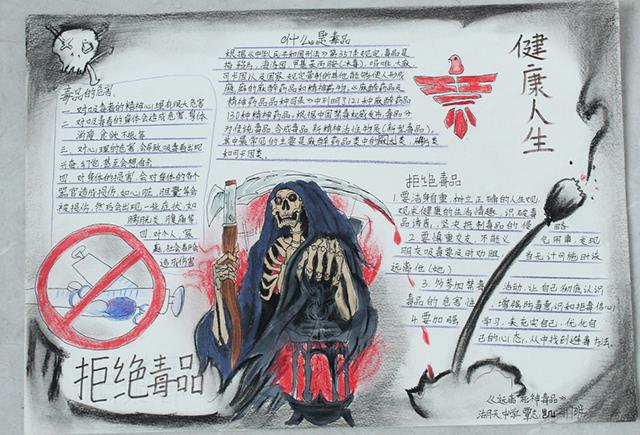 什么是毒品
根据《中华人民共和国刑法》第357条规定,毒品是
指鸦片、海洛因、甲基苯丙胺(冰毒)、吗啡、大麻、
可卡因以及国家规定管制的其他能够使人形成
瘾癖的麻醉药品和精神药物。《麻醉药品及
精神药品品种目录》中列明了121种麻醉药品
130种精神药品。根据中国禁毒
分为传统毒品、合成毒品、新精神活性物质(新型毒品),
其中最常见的主要是麻醉药品类中的大麻类、鸦片类
和可卡因类。
健康人生
毒品的危害:
一、对吸毒者的精神心理有很大危害
二、对吸毒者的身体会造成危害,身体
消瘦,食欲不振等
三、对心理的危害,会导致吸毒者出现
兴奋,幻觉,甚至会想自杀
四、对身体的危害,会对身体的各个
器官造成损伤,如心脏,胆囊等会
被损伤,然后会出现一些症状,如
膀胱炎,腹痛等
四、对个人、家
庭,社会都会
造成伤害
拒绝毒品
1.要洁身自重,树立正确的人生观,
观,求健康的生活情趣,识破毒
品诱害,坚决抵制毒品的侵
2.要慎重交友,不能义
朋友吸毒要及时劝阻
远离他(她)
3.多参加禁毒活动,让自己彻底认识
毒品的危害性,增强防毒意识和拒毒信心
4.要加强学习,来充实自己,优化自
己的心态,从中找到避毒方法。
拒绝毒品
《远离"死神毒品"》